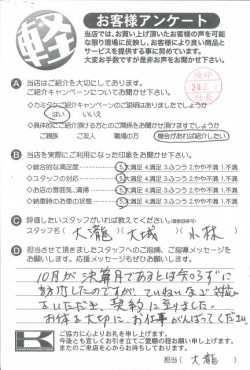 軽
お客様アンケート
当店では、お買い上げ頂いたお客様の声を可能
な限り現場に反映し、お客様により良い商品と
サービスを提供する事に努めています。
大変お手数ですが是非お声をお聞かせ下さい。
A 当店はご紹介を大切にしております。
ご紹介キャンペーンについてお聞かせ下さい。
◇カミタケご紹介キャンペーンのご説明はありましたでしょうか
はい いいえ
◇具体的にご紹介頂ける方とのご関係をお聞かせ頂けますでしょうか
ご親族 ご友人 職場の方 機会があれば紹介したい
B 当店を実際にご利用になった印象をお聞かせ下さい。
◇総合的な満足度 5.大満足 4.満足 3.ふつう 2.やや不満 1.不満
◇スタッフの対応 5.大満足 4.満足 3.ふつう 2.やや不満 1.不満
◇お店の雰囲気、清掃 5.大満足 4.満足 3.ふつう 2.やや不満 1.不満
◇納車時のお車の状態 5.大満足 4.満足 3.ふつう 2.やや不満 1.不満
C 評価したいスタッフがいれば教えてください。(複数回答可)
スタッフ名( 大瀧 大城 小林 )
D 担当させて頂きましたスタッフへのご指摘、ご指導メッセージを
お願いします。応援メッセージもぜひお願いします。
10月が決算月であるとは知らずに
訪店したのですが、ていねいなご対応
をいただき、契約に至りました。
お体を大切に、お仕事がんばってください。
ご協力に心よりお礼を申し上げます。
今後とも宜しくお引き立てご愛顧の程お願い申し上げます。
またのご来店を心からお待ちしております。
担当( 大瀧 )